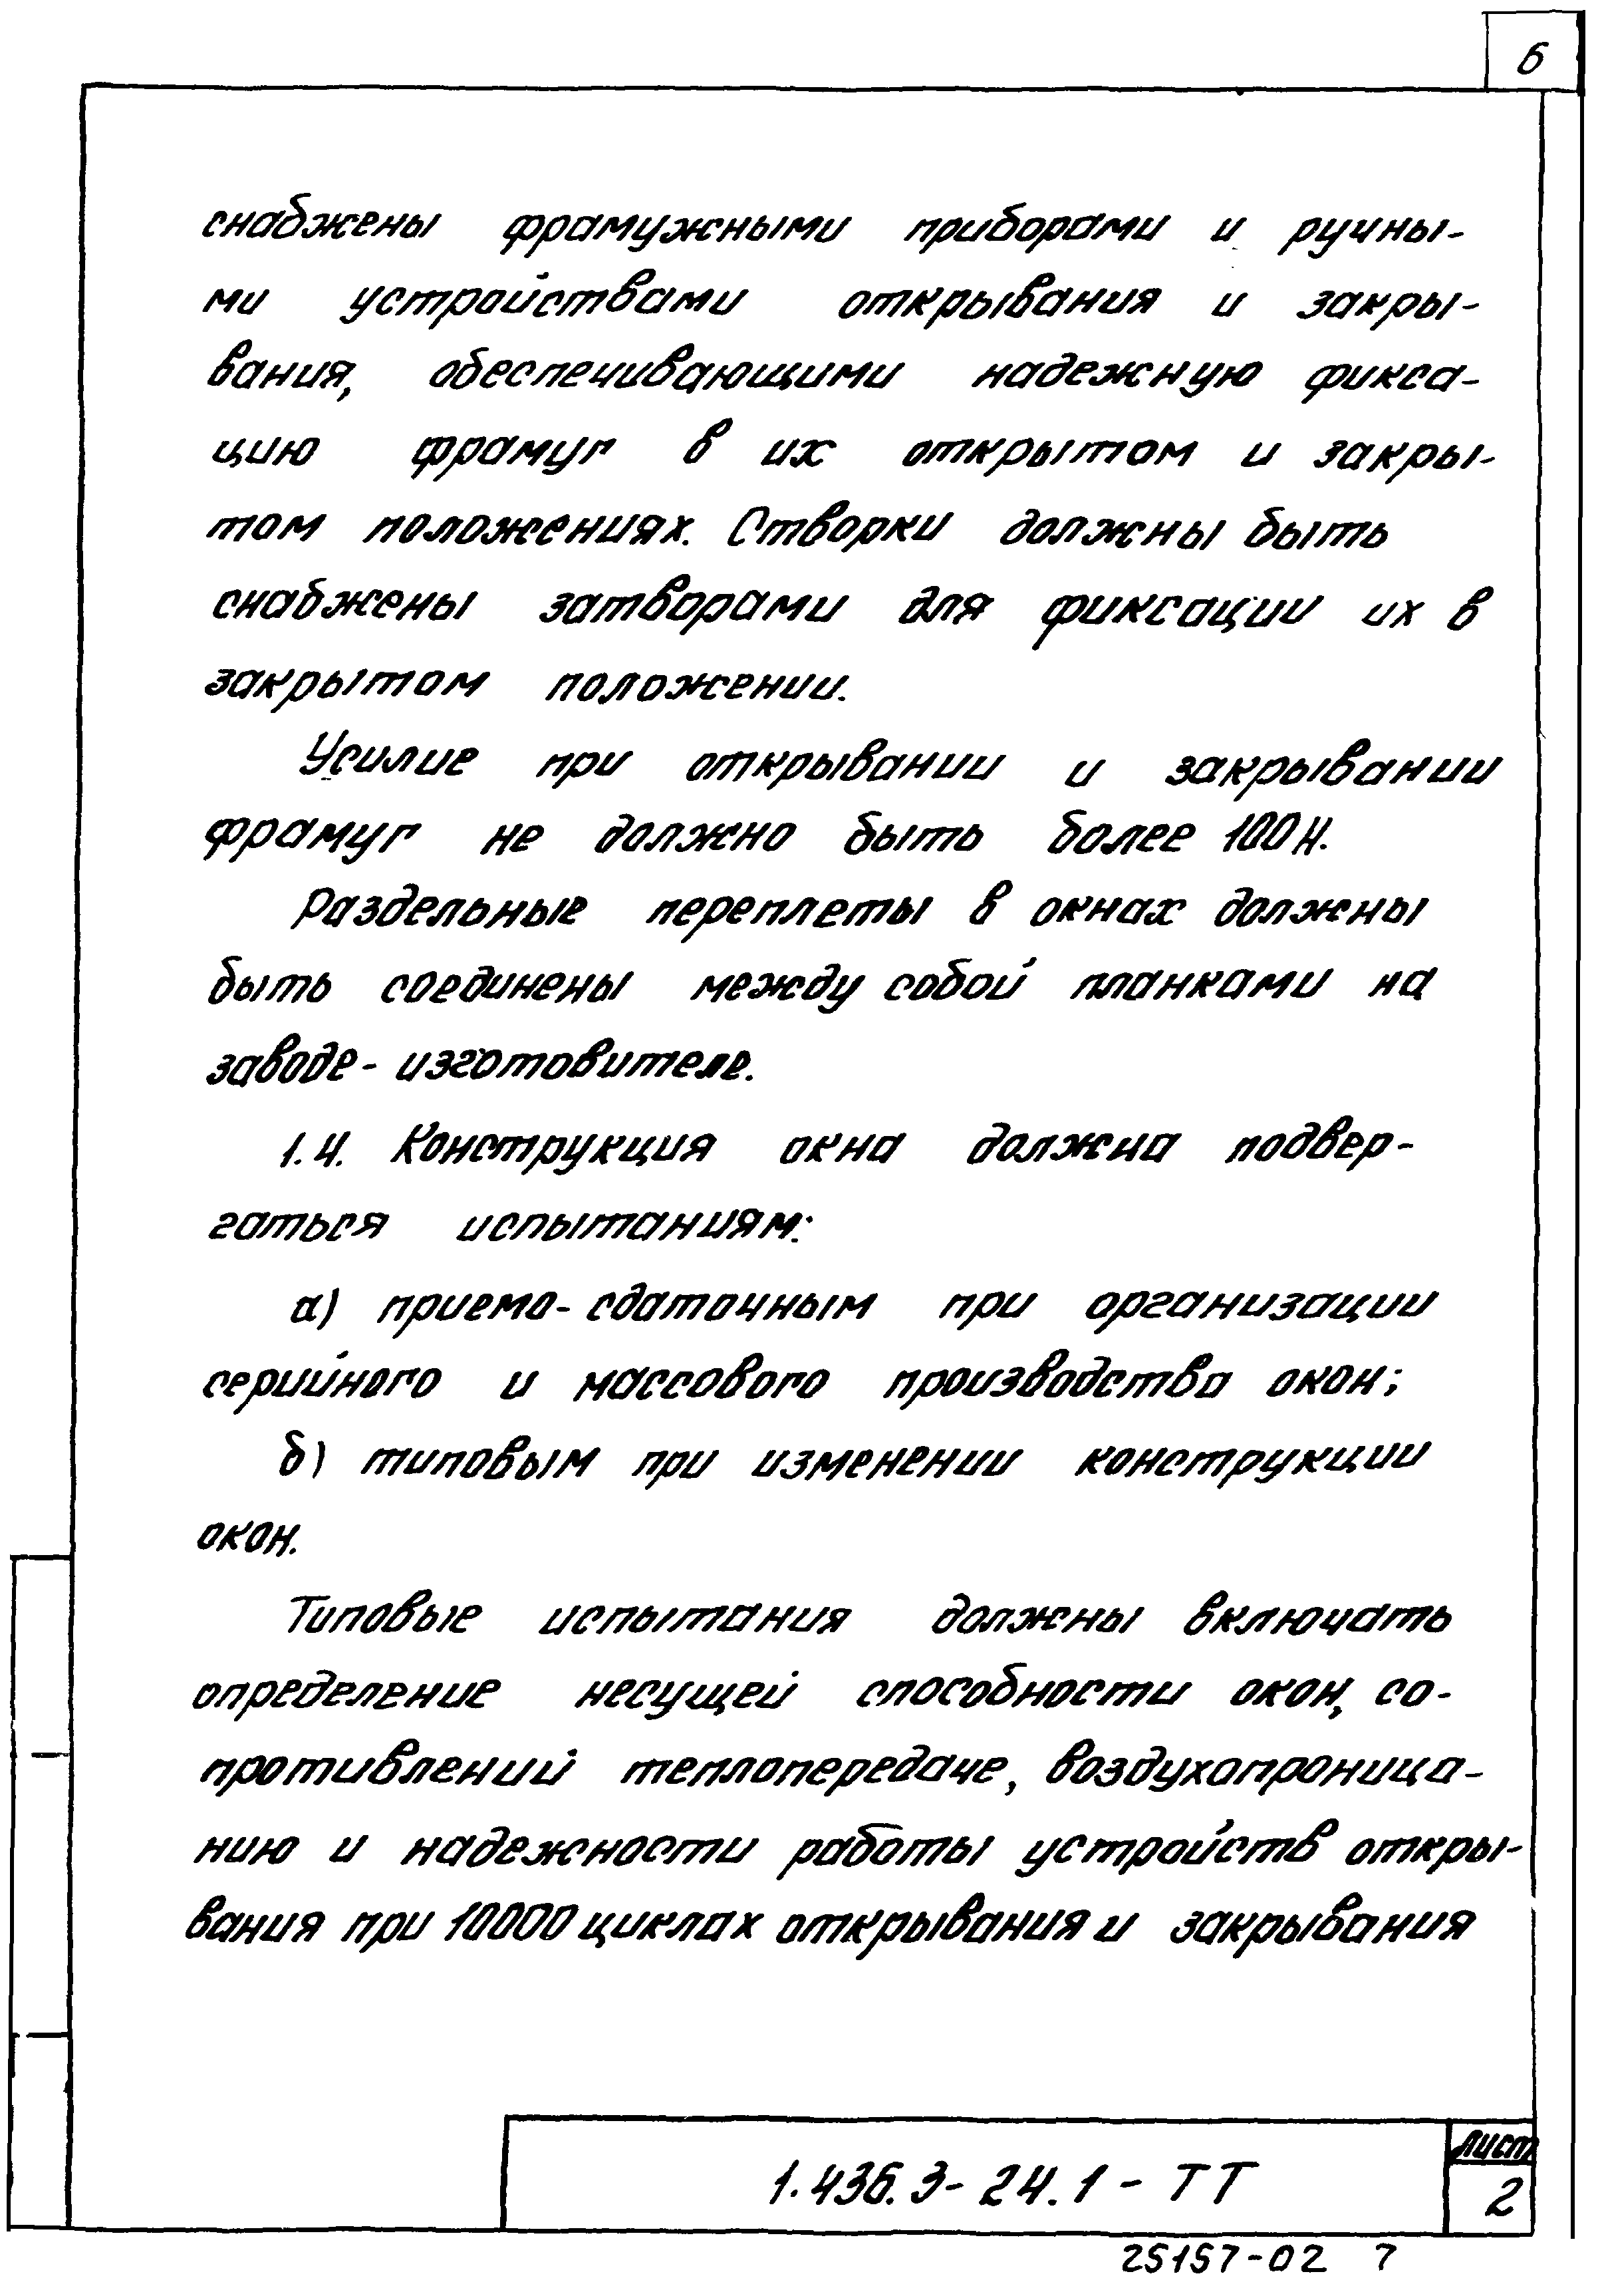 6
снабжены фрамужными приборами и ручны-
ми устройствами открывания и закры-
вания, обеспечивающими надежную фикса-
цию фрамуг в их открытом и закры-
том положениях. Створки должны быть
снабжены затворами для фиксации их в
закрытом положении.
Усилие при открывании и закрывании
фрамуг не должно быть более 100 Н.
Раздельные переплеты в окнах должны
быть соединены между собой планками на
заводе-изготовителе.
1.4. Конструкция окна должна подвер-
гаться испытаниям:
а) приемо-сдаточным при организации
серийного и массового производства окон;
б) типовым при изменении конструкции
окон.
Типовые испытания должны включать
определение несущей способности окон, со-
противлений теплопередаче, воздухопроница-
нию и надежности работы устройств откры-
вания при 10000 циклах открывания и закрывания
1.436.3-24.1-ТТ
Лист
2
25157-02 7